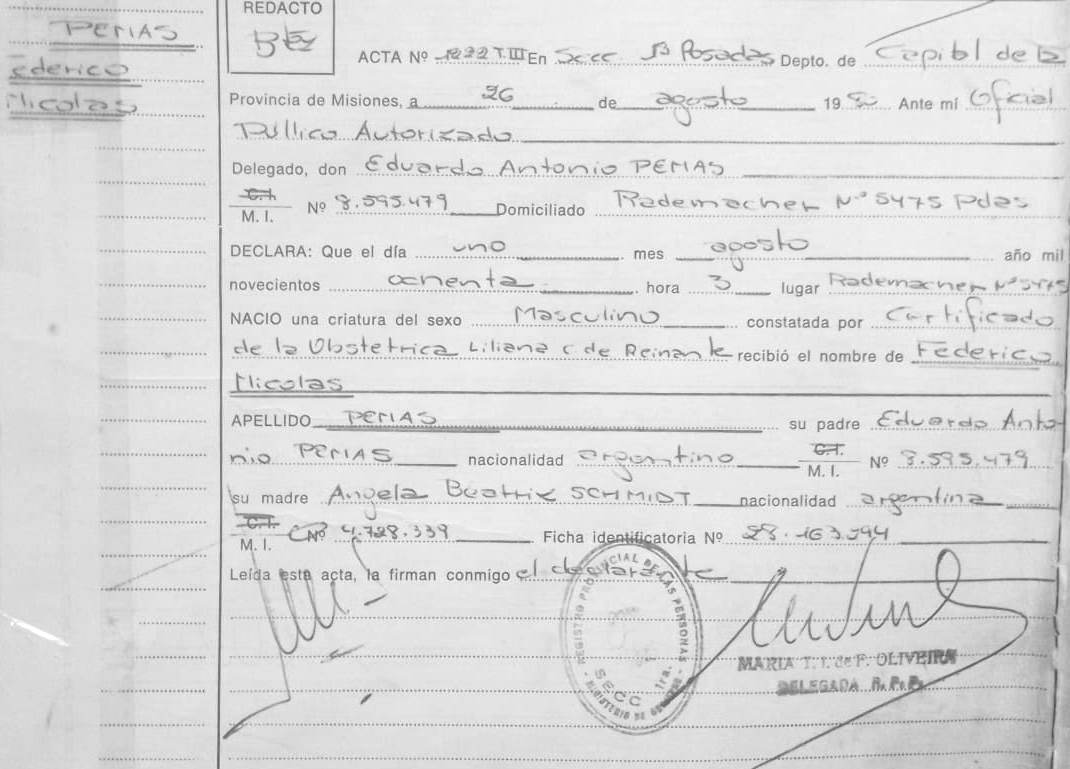 PEMAS
Federico
Nicolas
REDACTO
ACTA Nº 1222 T.III En Secc. 1ª Posadas Depto. de Capital de la
Provincia de Misiones, a 26 de agosto 19 80 Ante mí Oficial
Público Autorizado
Delegado, don Eduardo Antonio PEMAS
C.I.
M. I. Nº 8.595.479 Domiciliado Rademacher Nº 5475 Pdas
DECLARA: Que el día uno mes agosto año mil
novecientos ochenta hora 3 lugar Rademacher Nº 5475
NACIO una criatura del sexo Masculino constatada por Certificado
de la Obstetrica Liliana C de Reinank recibió el nombre de Federico
Nicolas
APELLIDO PEMAS su padre Eduardo Anto-
nio PEMAS nacionalidad argentino C.I.
M. I. Nº 8.595.479
su madre Angela Beatriz SCHMIDT nacionalidad argentina
C.I.
M. I. Nº 4.728.339 Ficha identificatoria Nº 28.163.594
Leída esta acta, la firman conmigo el declarante
REGISTRO PROVINCIAL DE LAS PERSONAS
SECC 1ra.
MINISTERIO DE GOBIERNO
MARIA T. I. de F. OLIVEIRA
DELEGADA R. P. P.